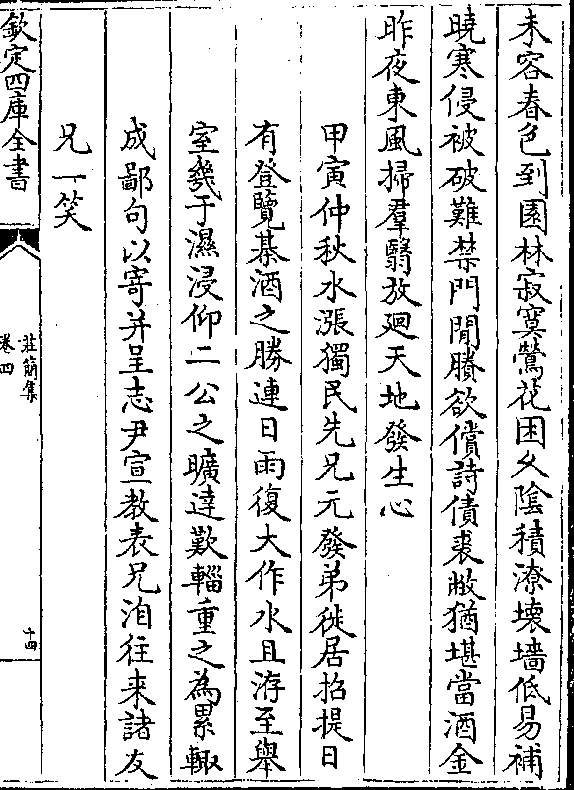 未容春色到園林寂寞鶯花困久陰積潦壊墻低易補
曉寒侵被破難禁門閒賸欲償詩債裘敝猶堪當酒金
昨夜東風掃羣翳放廻天地發生心
甲寅仲秋水漲獨民先兄元發弟徙居招提日
有登覽棊酒之勝連日雨復大作水且洊至舉
室幾于濕浸仰二公之曠達歎輜重之為累輙
成鄙句以寄并呈志尹宣教表兄洎往来諸友
兄一笑
欽定四庫全書
莊簡集
卷四
十四